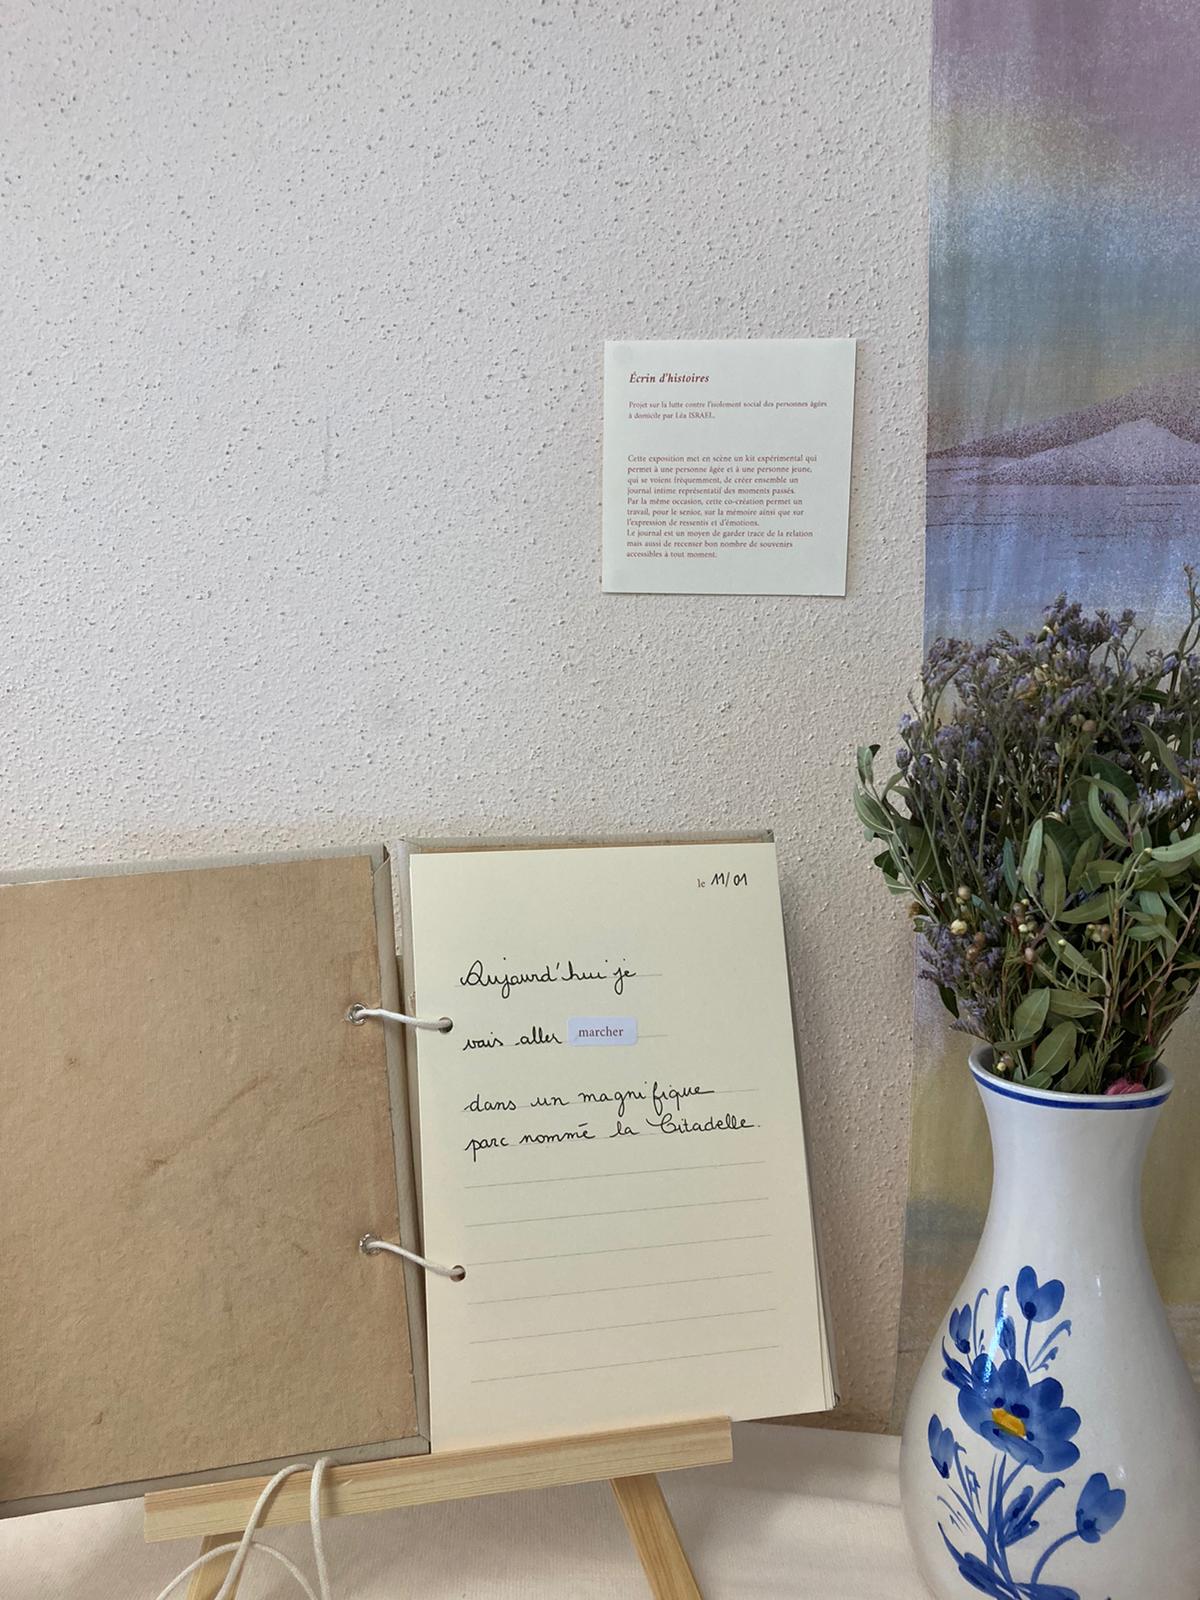 Écrin d'histoires
Projet sur la lutte contre l'isolement social des personnes âgées
à domicile par Léa ISRAEL.
Cette exposition met en scène un kit expérimental qui
permet à une personne âgée et à une personne jeune,
qui se voient fréquemment, de créer ensemble un
journal intime représentatif des moments passés.
Par la même occasion, cette co-création permet un
travail, pour le senior, sur la mémoire ainsi que sur
l'expression de ressentis et d'émotions.
Le journal est un moyen de garder trace de la relation
mais aussi de recenser bon nombre de souvenirs
accessibles à tout moment.
le 11/01
Aujourd'hui je
vais aller marcher
dans un magnifique
parc nommé la Citadelle.